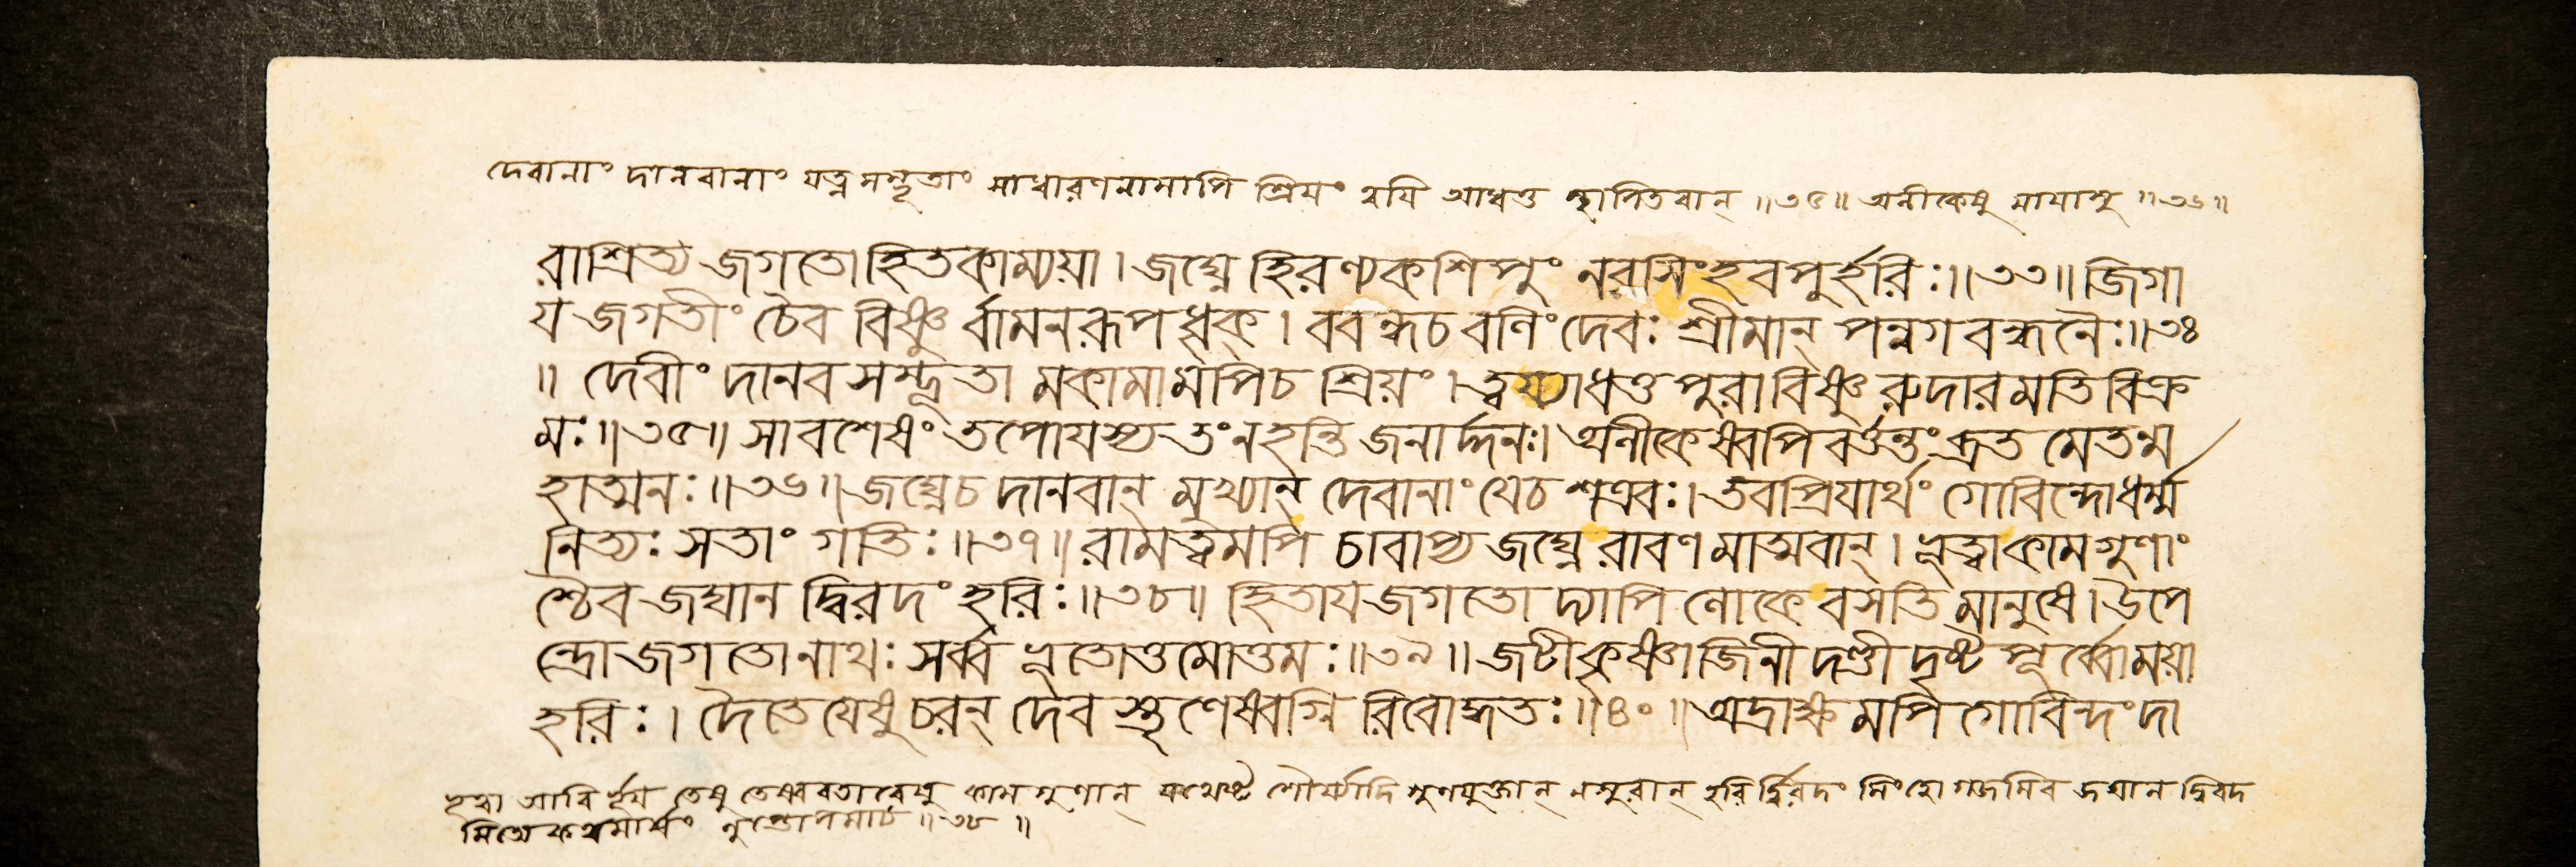 দেবানাং দানবানাং যত্নসম্ভূতাং সাধারণনামাপি শ্রিয়ং ত্বয়ি আধত্ত স্থাপিতবান্ ॥৩৫॥ অনীকেষু মায়াসু ॥৩৬॥
রাশ্রিত্য জগতোহিতকাম্যয়া। জঘ্নে হিরণ্যকশিপুং নরসিংহবপুর্হরিঃ॥৩৩॥ জিগা
য জগতীং চৈব বিষ্ণু র্বামনরূপধৃক্। ববন্ধচ বলিং দেবঃ শ্রীমান্ পন্নগবন্ধনৈঃ॥৩৪
॥ দেবীং দানবসম্ভূতা মকামামপিচ শ্রিয়ং। ত্বয্যাধত্ত পুরাবিষ্ণু রুদারমতিবিক্র
মঃ॥৩৫॥ সাবশেষং তপোযস্য তংনহন্তি জনার্দ্দনঃ। অনীকেষ্বপি বর্ত্তন্তং ব্রত মেতন্ম
হাত্মনঃ॥৩৬॥ জঘ্নেচ দানবান্ মুখ্যান্ দেবানাং যেচ শত্রবঃ। তবপ্রিযার্থং গোবিন্দোধর্ম্ম
নিত্যঃ সতাং গতিঃ॥৩৭॥ রামত্বমপি চাবাপ্য জঘ্নে রাবণ মাত্মবান্। ভূত্বাকামগুণাং
শ্চৈব জঘান দ্বিরদং হরিঃ॥৩৮॥ হিতায জগতো দ্যাপি লোকে বসতি মানুষে। উপে
ন্দ্রো জগতোনাথঃ সর্ব্ব ভূতোত্তমোত্তমঃ॥৩৯॥ জটীকৃষ্ণাজিনী দণ্ডী দৃষ্ট পূর্ব্বোময়া
হরিঃ। দৈতেযেষু চরন্ দেব স্তৃণেষ্বগ্নি রিবোদ্ধতঃ॥৪০॥ অদ্রাক্ষ মপি গোবিন্দং দা
ভূত্বা আবির্ভূয তেষু তেষ্ববতারেষু কাম গুণান্ যথেষ্ট শৌর্য্যাদি গুণযুক্তান্ হরির্দ্বিরদং সিংহো গজমিব জঘান দ্বিরদ
॥৩৮॥